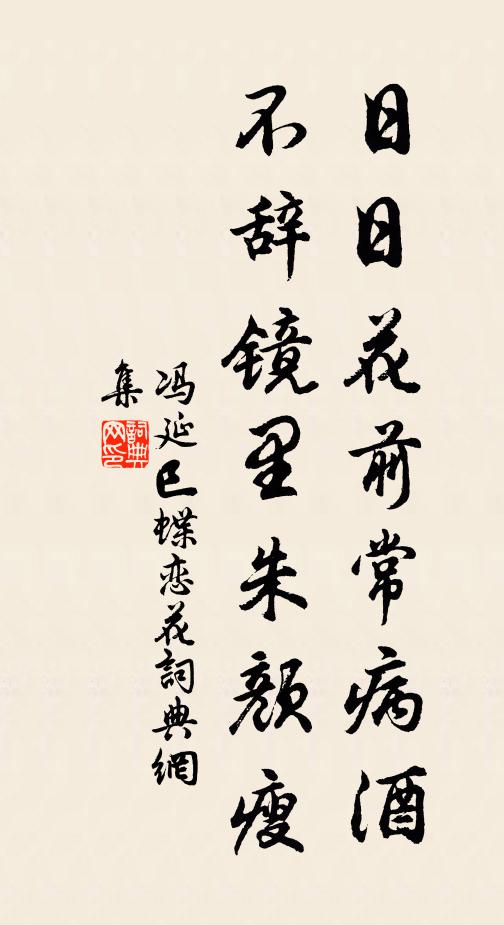 日日花前常病酒
不辞镜里朱颜瘦
冯延巳蝶恋花詞典網
集
詞典
网印